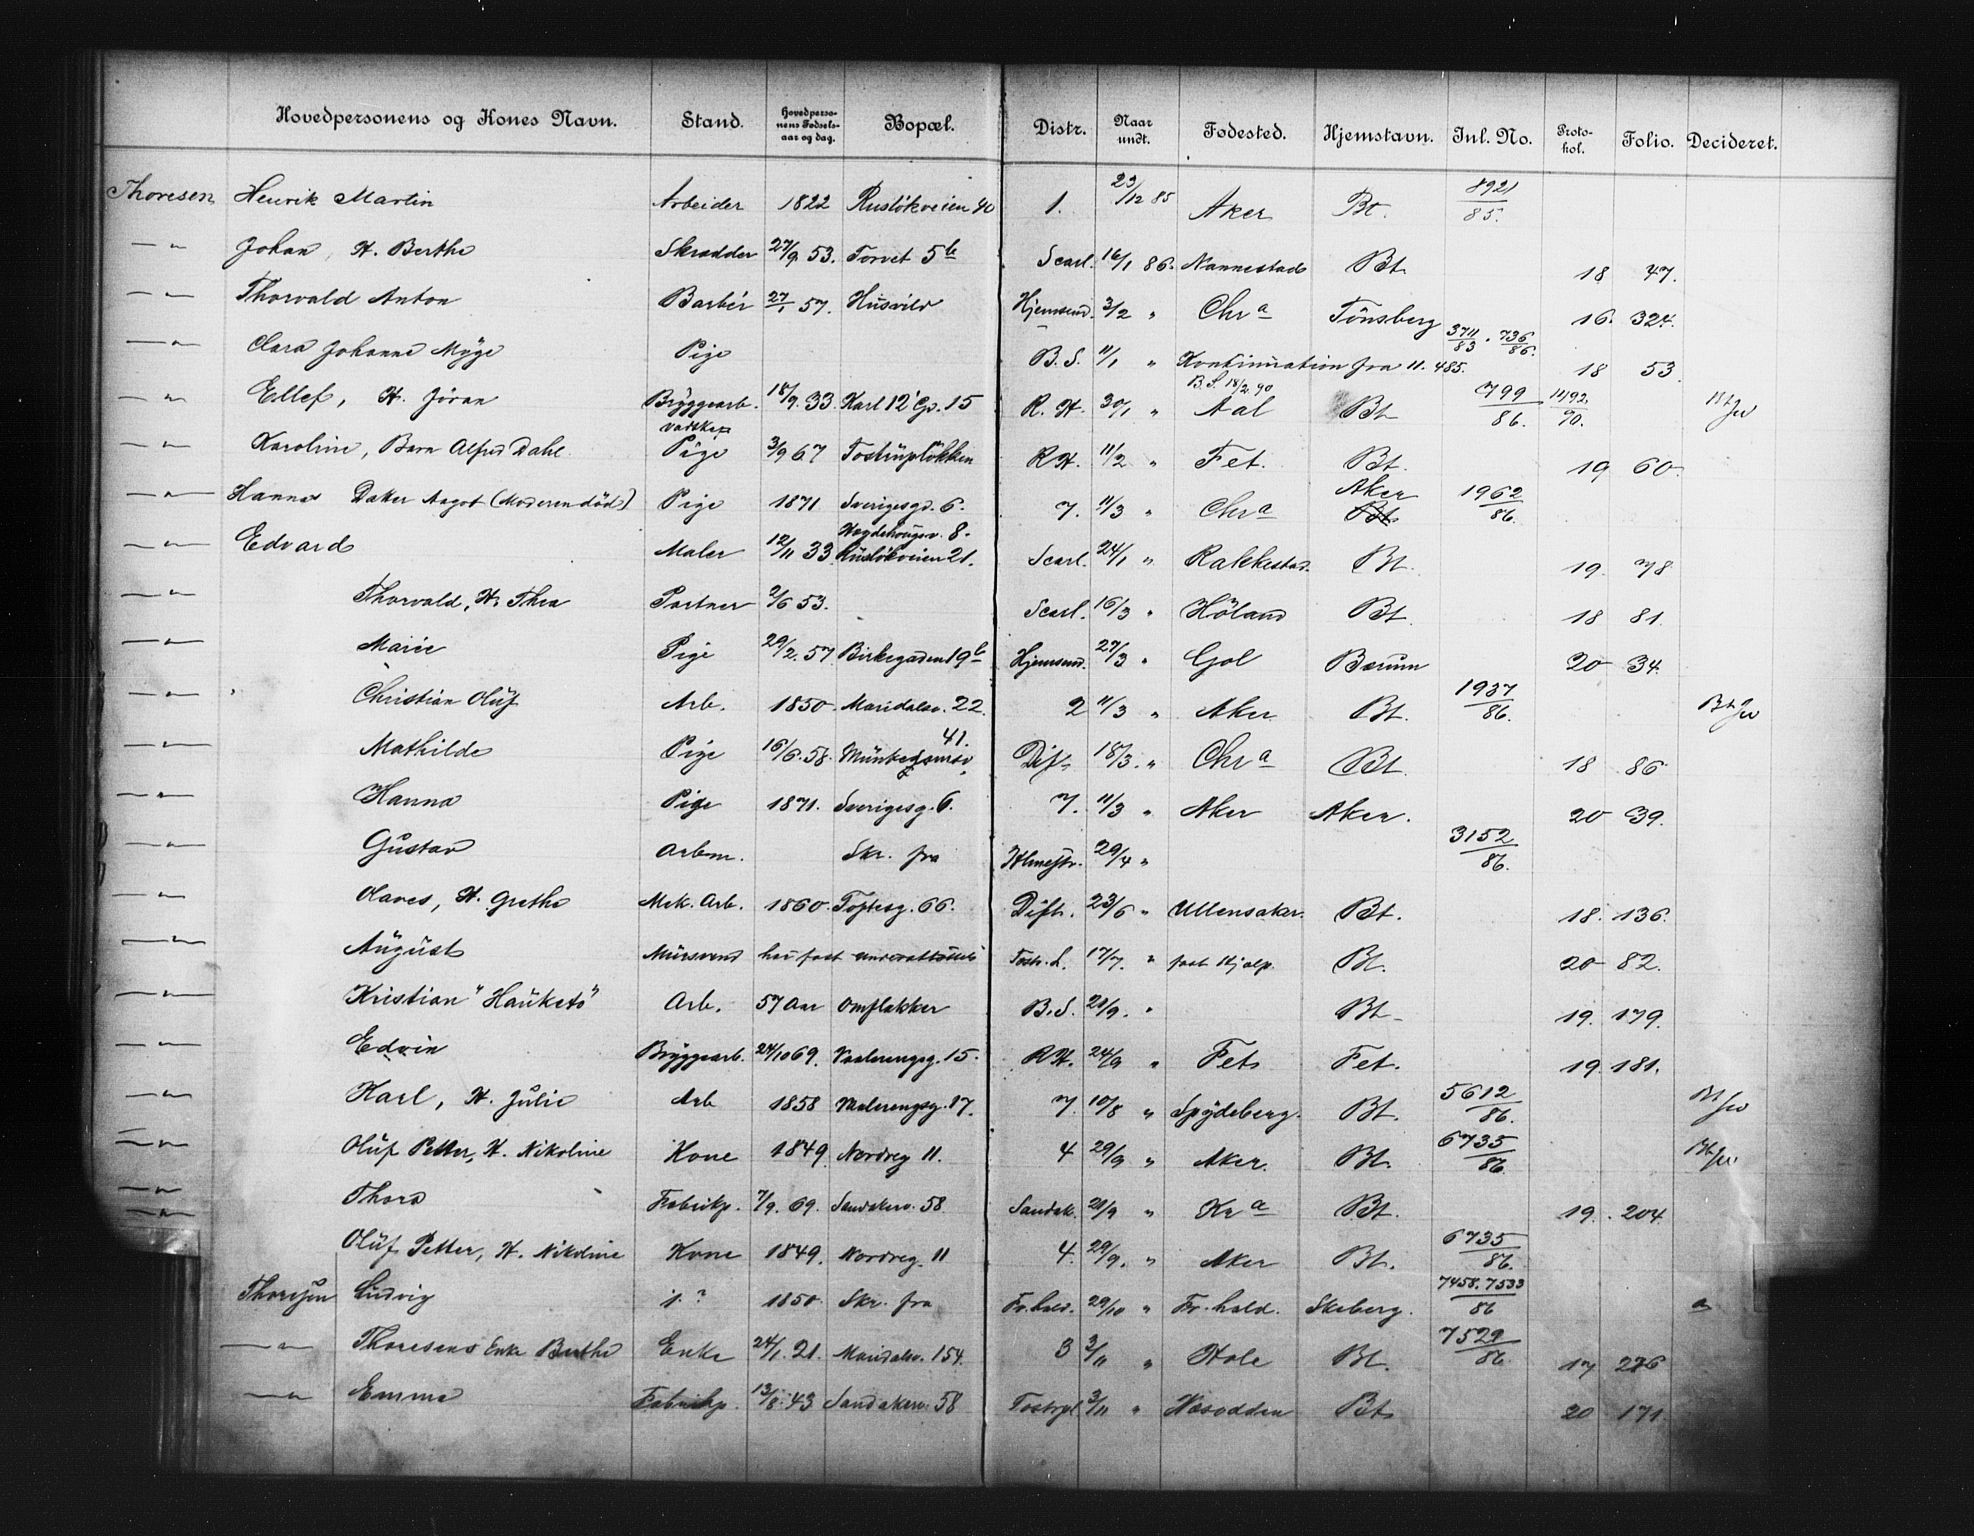 Hovedpersonens og Kones Navn. Stand. Hovedpersonens Fødselsaar og dag. Bopæl. Distr. Naar undt. Fødested. Hjemstavn. Inl. No. Protokol. Folio. Decideret.
Thoresen Henrik Martin Arbeider 1822 Rusløkveien 40 1. 23/12 85 Aker Bt. 8921/85.
—"— Johan, H. Berthe Skrædder 27/9 53. Torvet 5b Scarl. 16/1 86. Nannestad Bt. 18 47.
—"— Thorvald Anton Barbér 27/1 57. Husvild Hjemsend. 3/2 " Chr a Tönsberg 16. 324.
—"— Clara Johanne Myge Pige B. S. 11/1 " Kontinuation fra 11. 485. 3711/83 . 736/86. 18 53.
—"— Ellef, H. Jöran Bryggearb. 18/9. 33. Karl 12' Gd. 15 R. H. 30/1 " B. S. 18/2 90 Aal Bt. 799/86. 1492/90.
—"— Karoline, Barn Alfred Dahl vadsker Pige 3/9 67 Tostrupløkken R. H. 11/2 " Fet. Bt. 19 60.
—"— Hanna Daker Aagot (Moderen död) Pige 1871 Sverigesgd. 6. 7. 11/3 " Chr a Aker Bt. 1962/86.
—"— Edvard Maler 12/11 33. Hegdehougsv. 8. Rusløkveien 21. Scarl. 24/1 " Rakkestad. Bt. 19. 78
—"— Thorvald, H. Thea Portner 2/6 53. Scarl. 16/3 " Höland Bt. 18 81.
—"— Marie Pige 29/2. 57 Birkegaden 19b Hjemsend. 27/3 " Gol Bærum 20 34.
—"— Christian Oluf Arb. 1850. Maridalsv. 22. 2 11/3 " Aker Bt. 1937/86.
—"— Mathilde Pige 16/6. 58. Munkedamsv. 41. Dift. 18/3. " Chr a Bt. 18 86
—"— Hanna Pige 1871. Sverigesg. 6. 7. 11/3 " Aker Aker. 20 39.
—"— Gustav Arbm. Skr. fra 29/4 " 3152/86.
—"— Olaves, H. Grethe Mek. Arb. 1860. Toftesg. 66. Dift. 23/6 " Ullensaker. Bt. 18. 136.
—"— August Mursvend har fast understøttelse Tostr. L. 17/7. " fast Hjælp. Bt. 20 82.
—"— Kristian "Hauketo" Arb. 57 Aar Omflakker B. S. 21/9. " Bt. 19. 179.
—"— Edvin Bryggearb. 24/10 69. Vaalerengsg. 15. R. H. 24/9 " Fet Fet. 19. 181.
—"— Karl, H. Julie Arb 1858 Vaalerengsg. 17. 7. 10/8 " Spydeberg. Bt. 5612/86.
—"— Oluf Petter, H. Nikoline Kone 1849. Nordreg 11. 4 29/9 " Aker. Bt. 6735/86.
—"— Thora Fabrikp. 7/9. 69. Sandakerv. 58 Sandak. 21/9 " Kr a Bt. 19. 204.
—"— Oluf Petter, H. Nikoline Kone 1849. Nordreg. 11 4. 29/9. " Aker Bt. 6735/86.
Thoresen Ludvig 1850. Skr. fra Fr. hald. 29/10 " Fr. hald. Skeberg. 7458. 7533/86
—"— Thoresens Enke Berthe Enke 24/1. 21. Maridalsv. 154. 3 3/11 " Hole Bt. 7529/86 17 276
—"— Emma Fabrikp. 13/8. 43 Sandakerv. 58 Tostrpl. 3/11 " Næsodden Bt. 20 171.